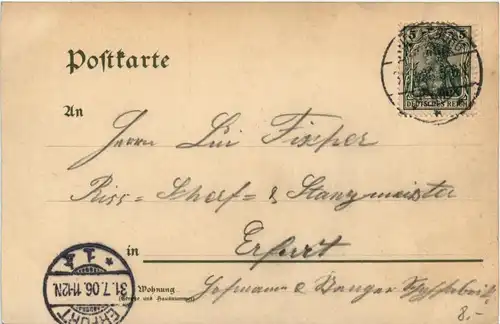 Postkarte
5 5
DEUTSCHES REICH
An
Herrn Lui Fischer
Riss- Schoef- & Stanzmeister
in Erfurt
Wohnung
(Straße und Hausnummer)
Hofmann &
* 1 *
31.7.06.11-12N.
ERFURT
8.-